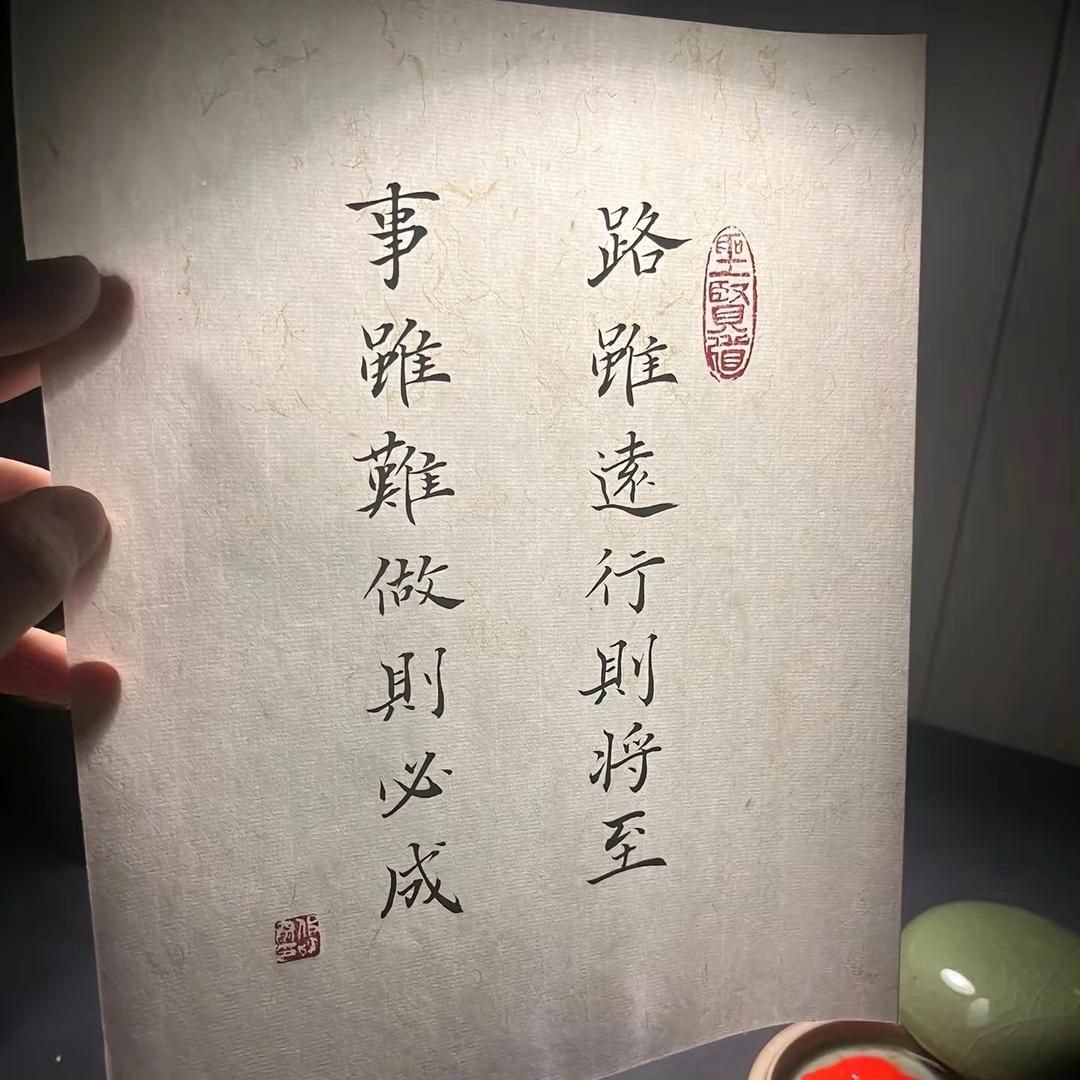 路雖遠行則将至
事雖難做則必成
聖賢道